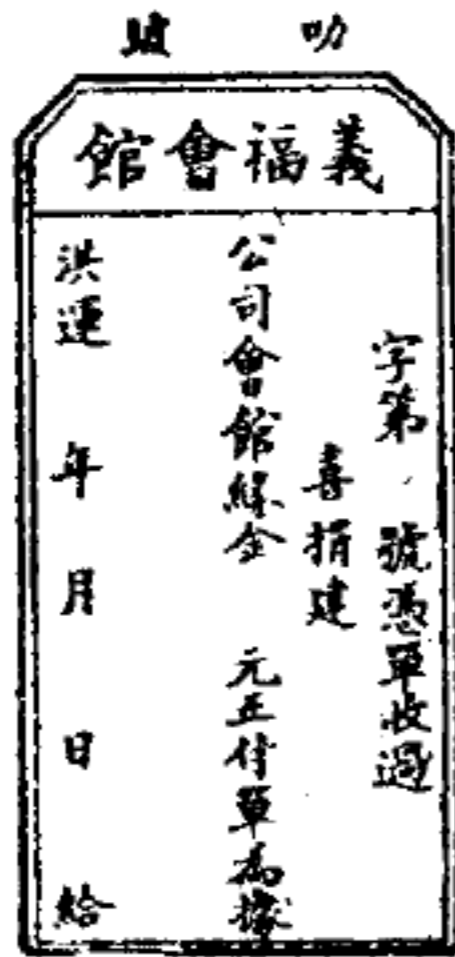 叻
義福會館
字第 號憑單收過
喜捐建
公司會館緣金 元正付單為據
洪運 年 月 日 給